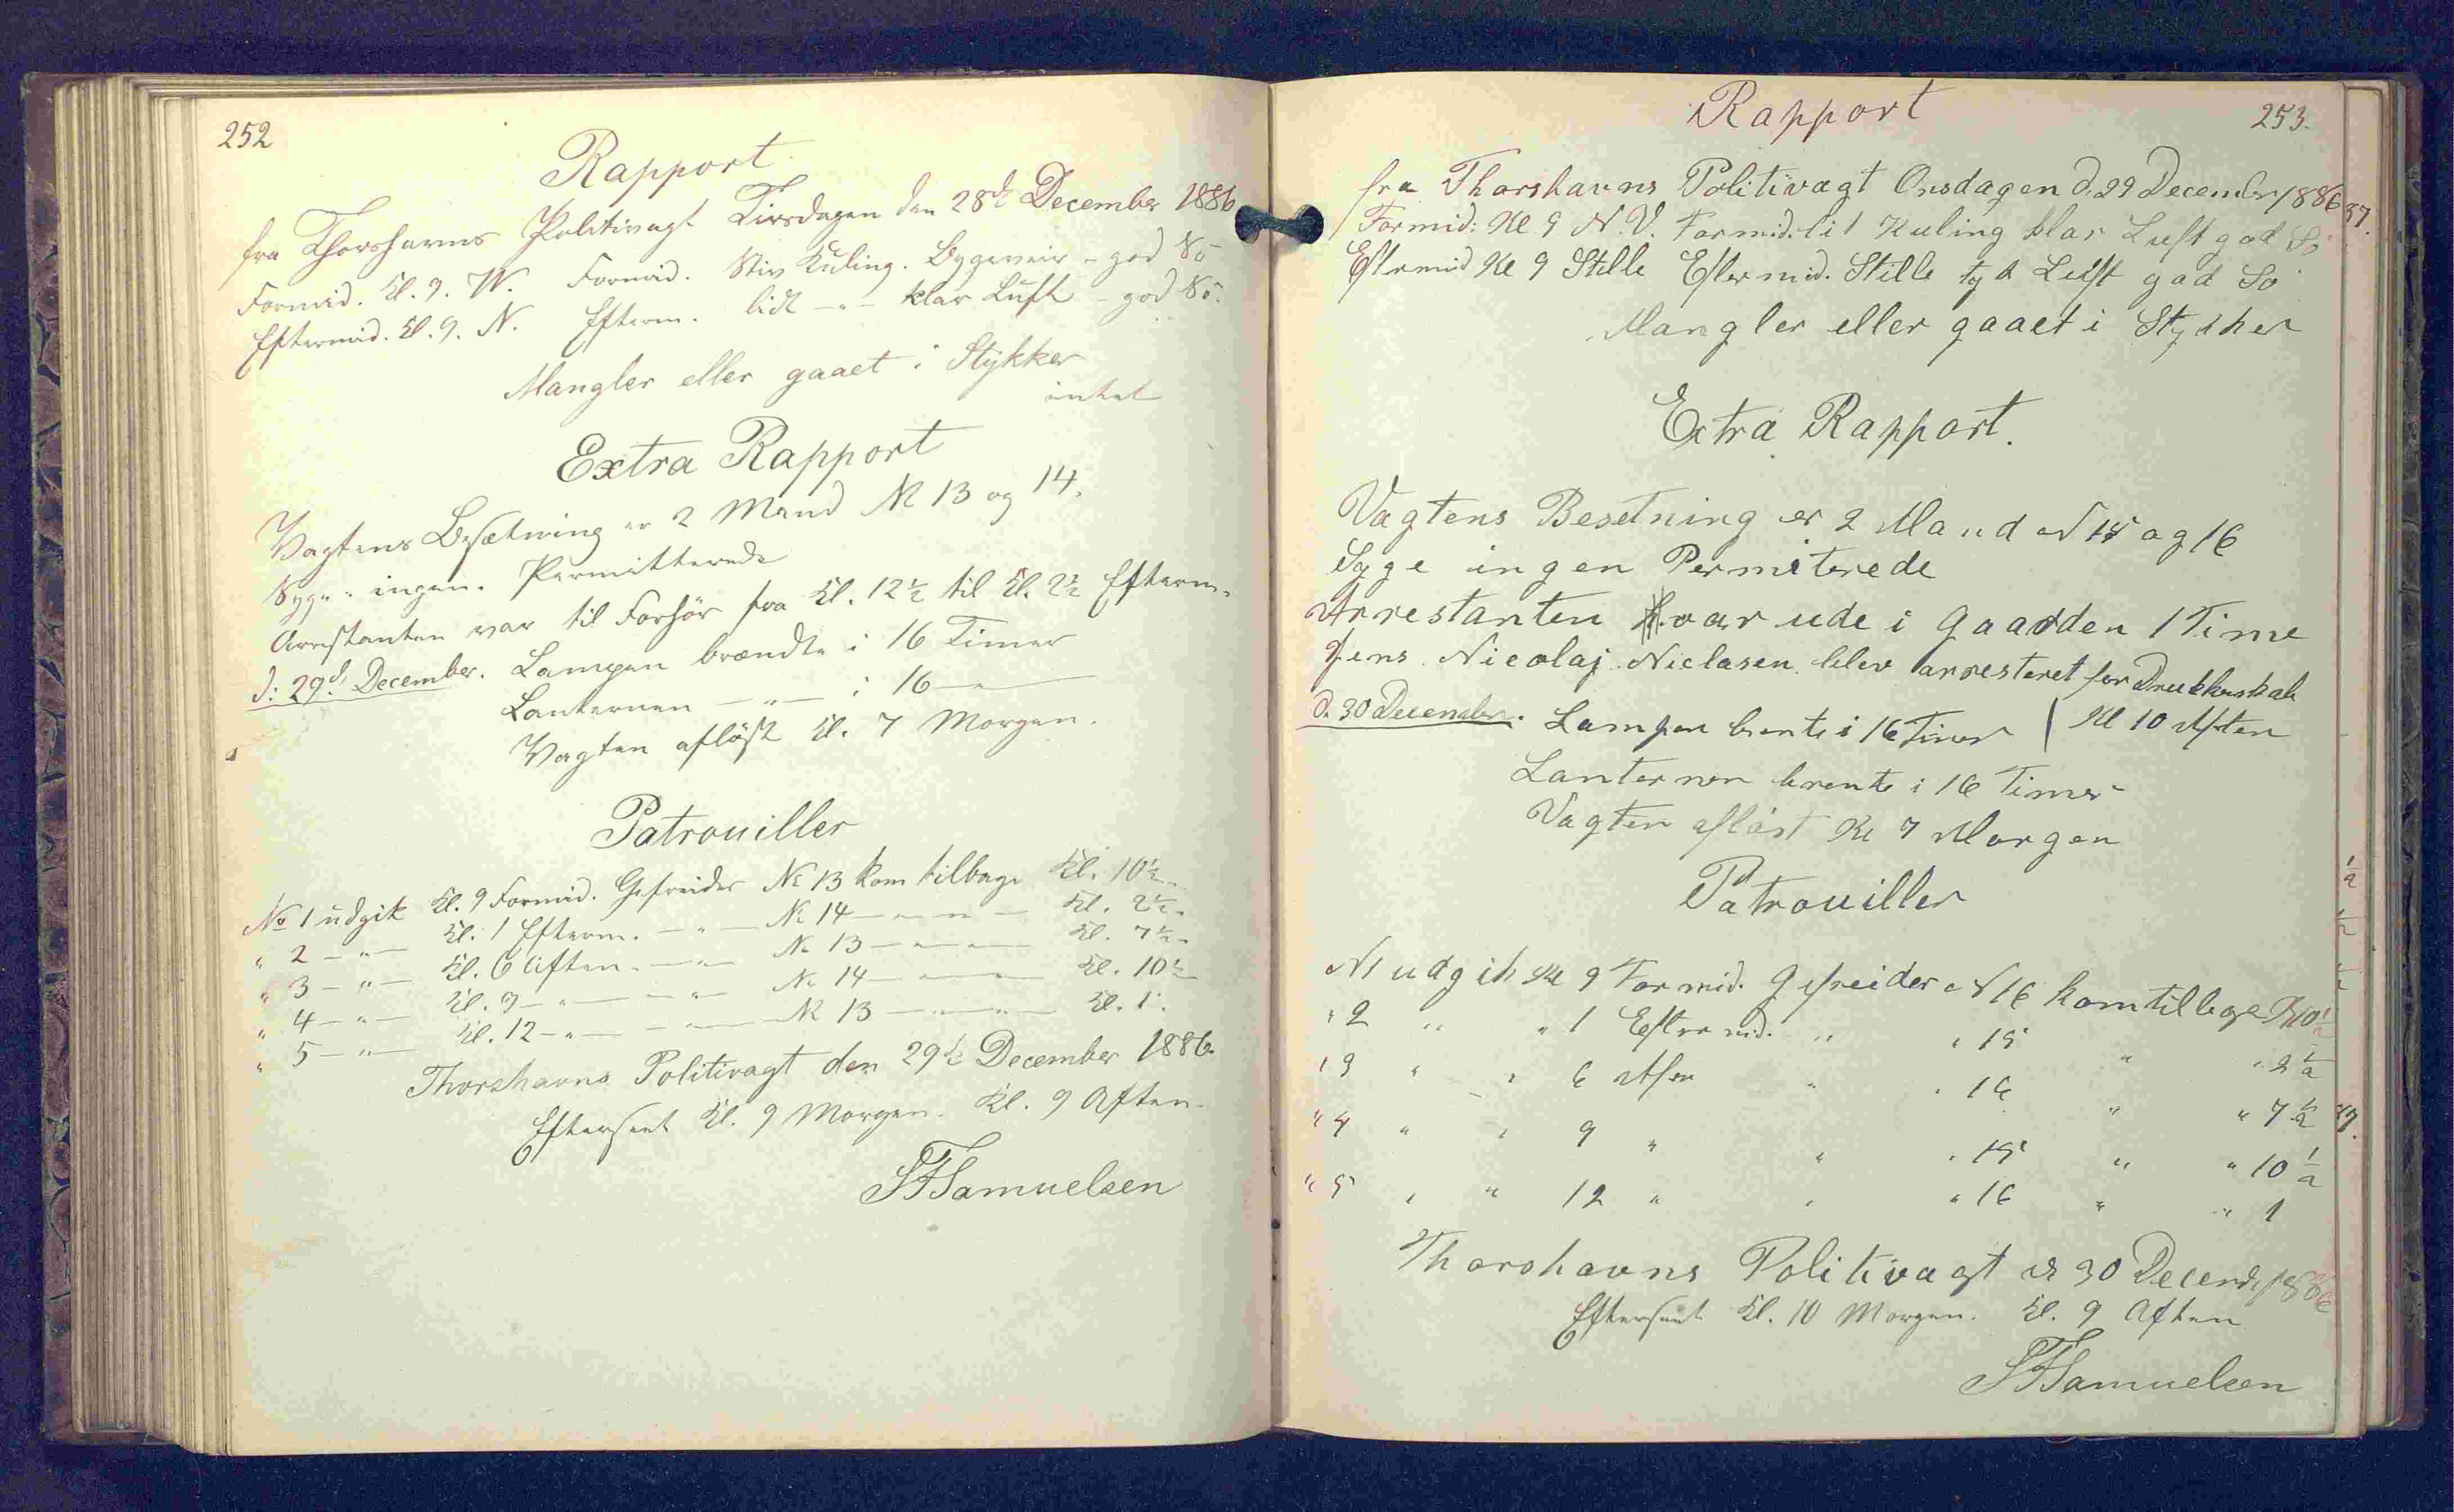 252
Rapport
fra Thorshavns Politivagt Tirsdagen den 28d December 1886
Formid. Kl. 9. W. Formid. Stiv Kuling. Bygeveir - god Sö
Eftermid. Kl. 9. N. Efterm. lidt -"- klar Luft - god Sö.
Mangler eller gaaet i Stykker
intet
Extra Rapport
Vagtens Besætning er 2 Mand No 13 og 14.
Syge - ingen. Permitterede
Arrestanten var til Forhör fra Kl. 12½ til Kl. 2½ Efterm.
d: 29d December. Lampen brændte i 16 Timer
Lanternen -"- i 16 -"-
Vagten aflöst Kl. 7 Morgen.
Patrouiller
No 1 udgik Kl. 9 Formid. Gefreider No 13 kom tilbage Kl. 10½.
" 2 -"- Kl. 1 Efterm. -"- No 14 -"- -"- Kl. 2½.
" 3 -"- Kl. 6 Aften. -"- No 13 -"- -"- Kl. 7½.
" 4 -"- Kl. 9 -"- -"- No 14 -"- -"- Kl. 10½
" 5 -"- Kl. 12 -"- -"- No 13 -"- -"- Kl. 1.
Thorshavns Politivagt den 29d December 1886.
Efterseet Kl. 9 Morgen. Kl. 9 Aften.
SFSamuelsen
Rapport
253.
fra Thorshavns Politivagt Onsdagen d. 29 December 1886
Formid: Kl 9 N.V. Formid. lit Kuling klar Luft god Sö
Eftermid Kl 9 Stille Eftermid. Stille tyk Luft god Sö
Mangler eller gaaet i Stykker
Extra Rapport.
Vagtens Besetning er 2 Mand N 15 og 16
Syge ingen Permiterede
Arrestanten var ude i Gaarden 1 Time
Jens Nicolaj Niclasen blev arresteret for Drukkenskab
d. 30 December. Lampen brente i 16 Timer | Kl 10 Aften
Lanternen brente i 16 Timer
Vagten aflöst Kl 7 Morgen
Patrouiller
N1 udgik Kl 9 Formid. Gefreider N 16 kom tilbage Kl 10½
" 2 " " 1 Eftermid. " " 15 " " 2½
" 3 " " 6 Aften " " 16 " " 7½
" 4 " " 9 " " " 15 " " 10½
" 5 " " 12 " " " 16 " " 1
Thorshavns Politivagt d 30 December 1886
Efterseet Kl. 10 Morgen. Kl. 9 Aften
SFSamuelsen